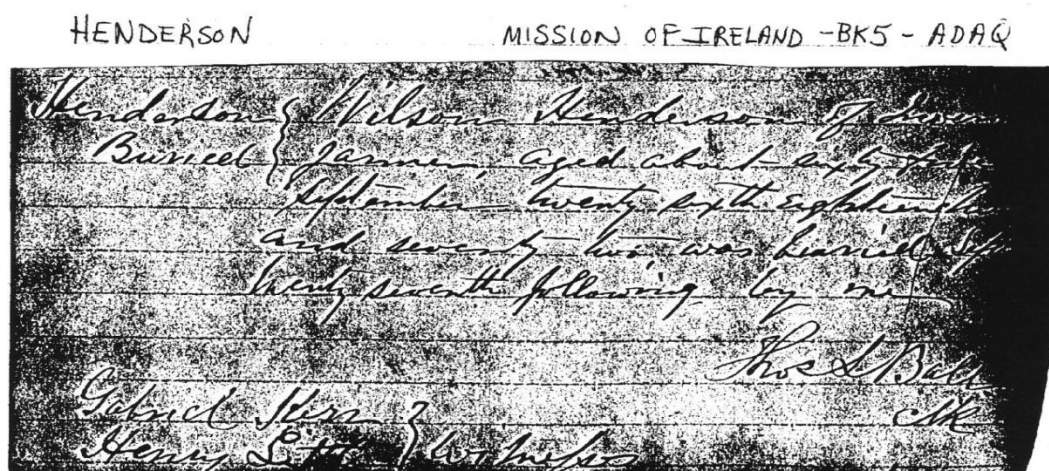 HENDERSON MISSION OF IRELAND - BK5 - ADAQ
Henderson Wilson Henderson of
Buried farmer, aged about sixty
September twenty sixth eighteen
and seventy two, was buried
twenty seventh following by me
Thos S Ball
Gabriel Kerr
Henry witness